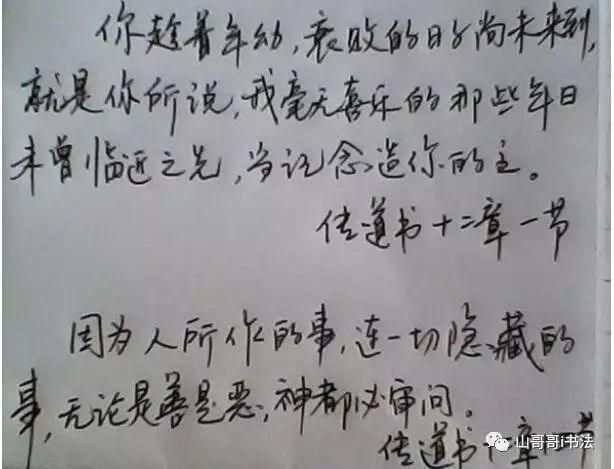 你趁着年幼,衰败的日子尚未来到,
就是你所说,我毫无喜乐的那些年日
未曾临近之先,当记念造你的主。
传道书十二章一节
因为人所作的事,连一切隐藏的
事,无论是善是恶,神都必审问。
传道书十 章 节
山哥哥i书法